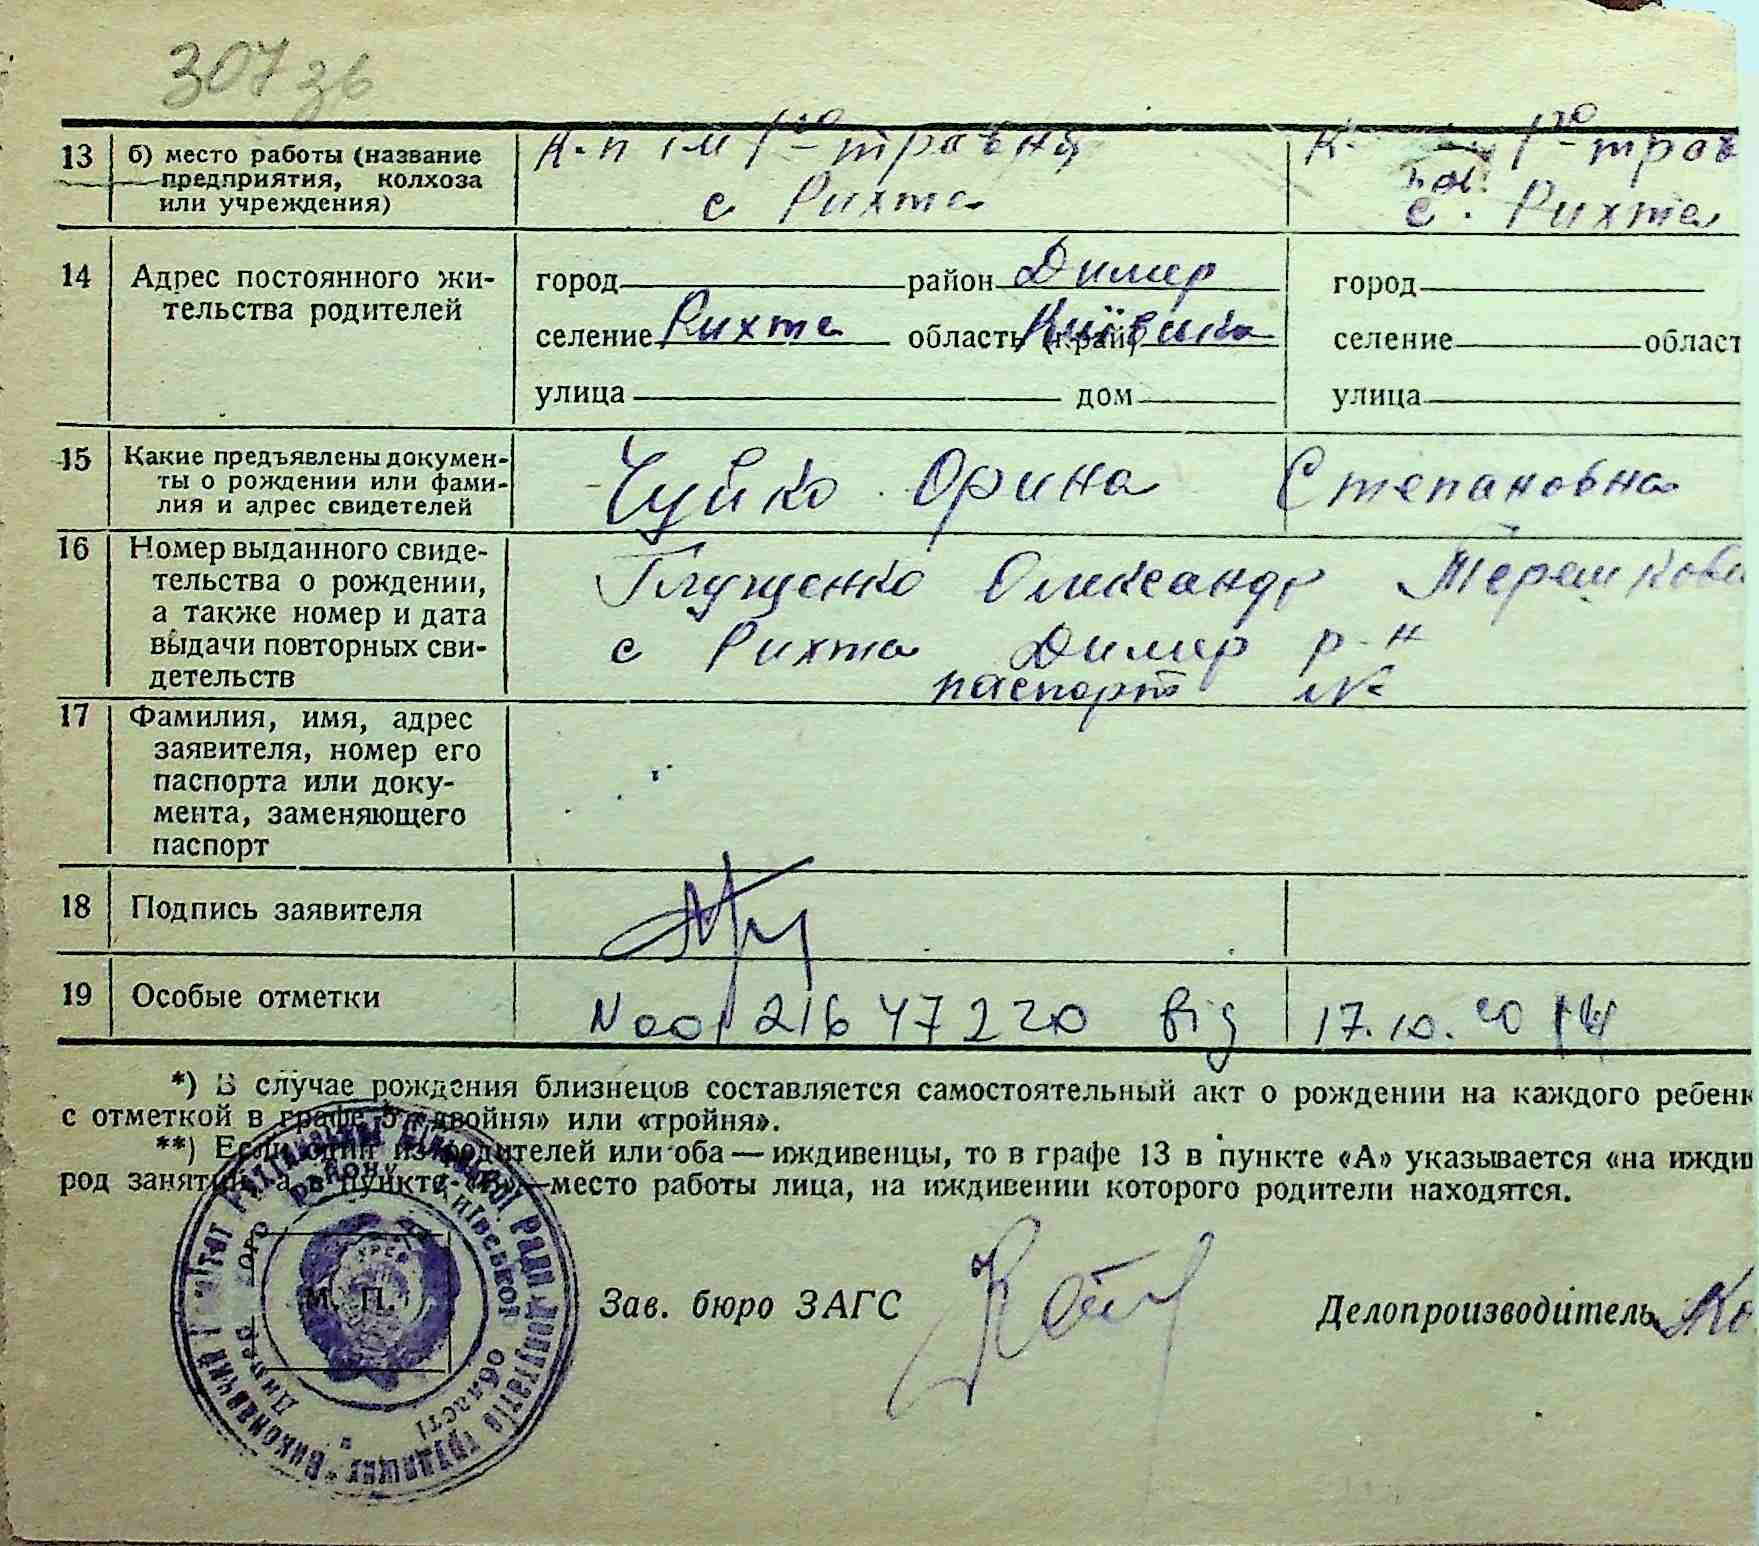 307 зв
13 б) место работы (название К-п ім 1го травня К. 1го трав
предприятия, колхоза
или учреждения) с Рихта с. Рихта
14 Адрес постоянного жи- город район Димер город
тельства родителей селение Рихта область (край) Київська селение област
улица дом улица
15 Какие предъявлены докумен- Чуйко Орина Степановна
ты о рождении или фами-
лия и адрес свидетелей
16 Номер выданного свиде- Глущенко Олександр Терешкови
тельства о рождении, с Рихта Димер р-н
а также номер и дата паспорт №
выдачи повторных сви-
детельств
17 Фамилия, имя, адрес
заявителя, номер его
паспорта или доку-
мента, заменяющего
паспорт
18 Подпись заявителя
19 Особые отметки N 00121647220 від 17.10.2014
*) В случае рождения близнецов составляется самостоятельный акт о рождении на каждого ребенк
с отметкой в графе 5 «двойня» или «тройня».
**) Если один из родителей или оба — иждивенцы, то в графе 13 в пункте «А» указывается «на иждив
род занятий, а в пункте «Б» — место работы лица, на иждивении которого родители находятся.
М. П.
Зав. бюро ЗАГС Делопроизводитель
Виконавчий Комітет Ради депутатів трудящих
району Київської області